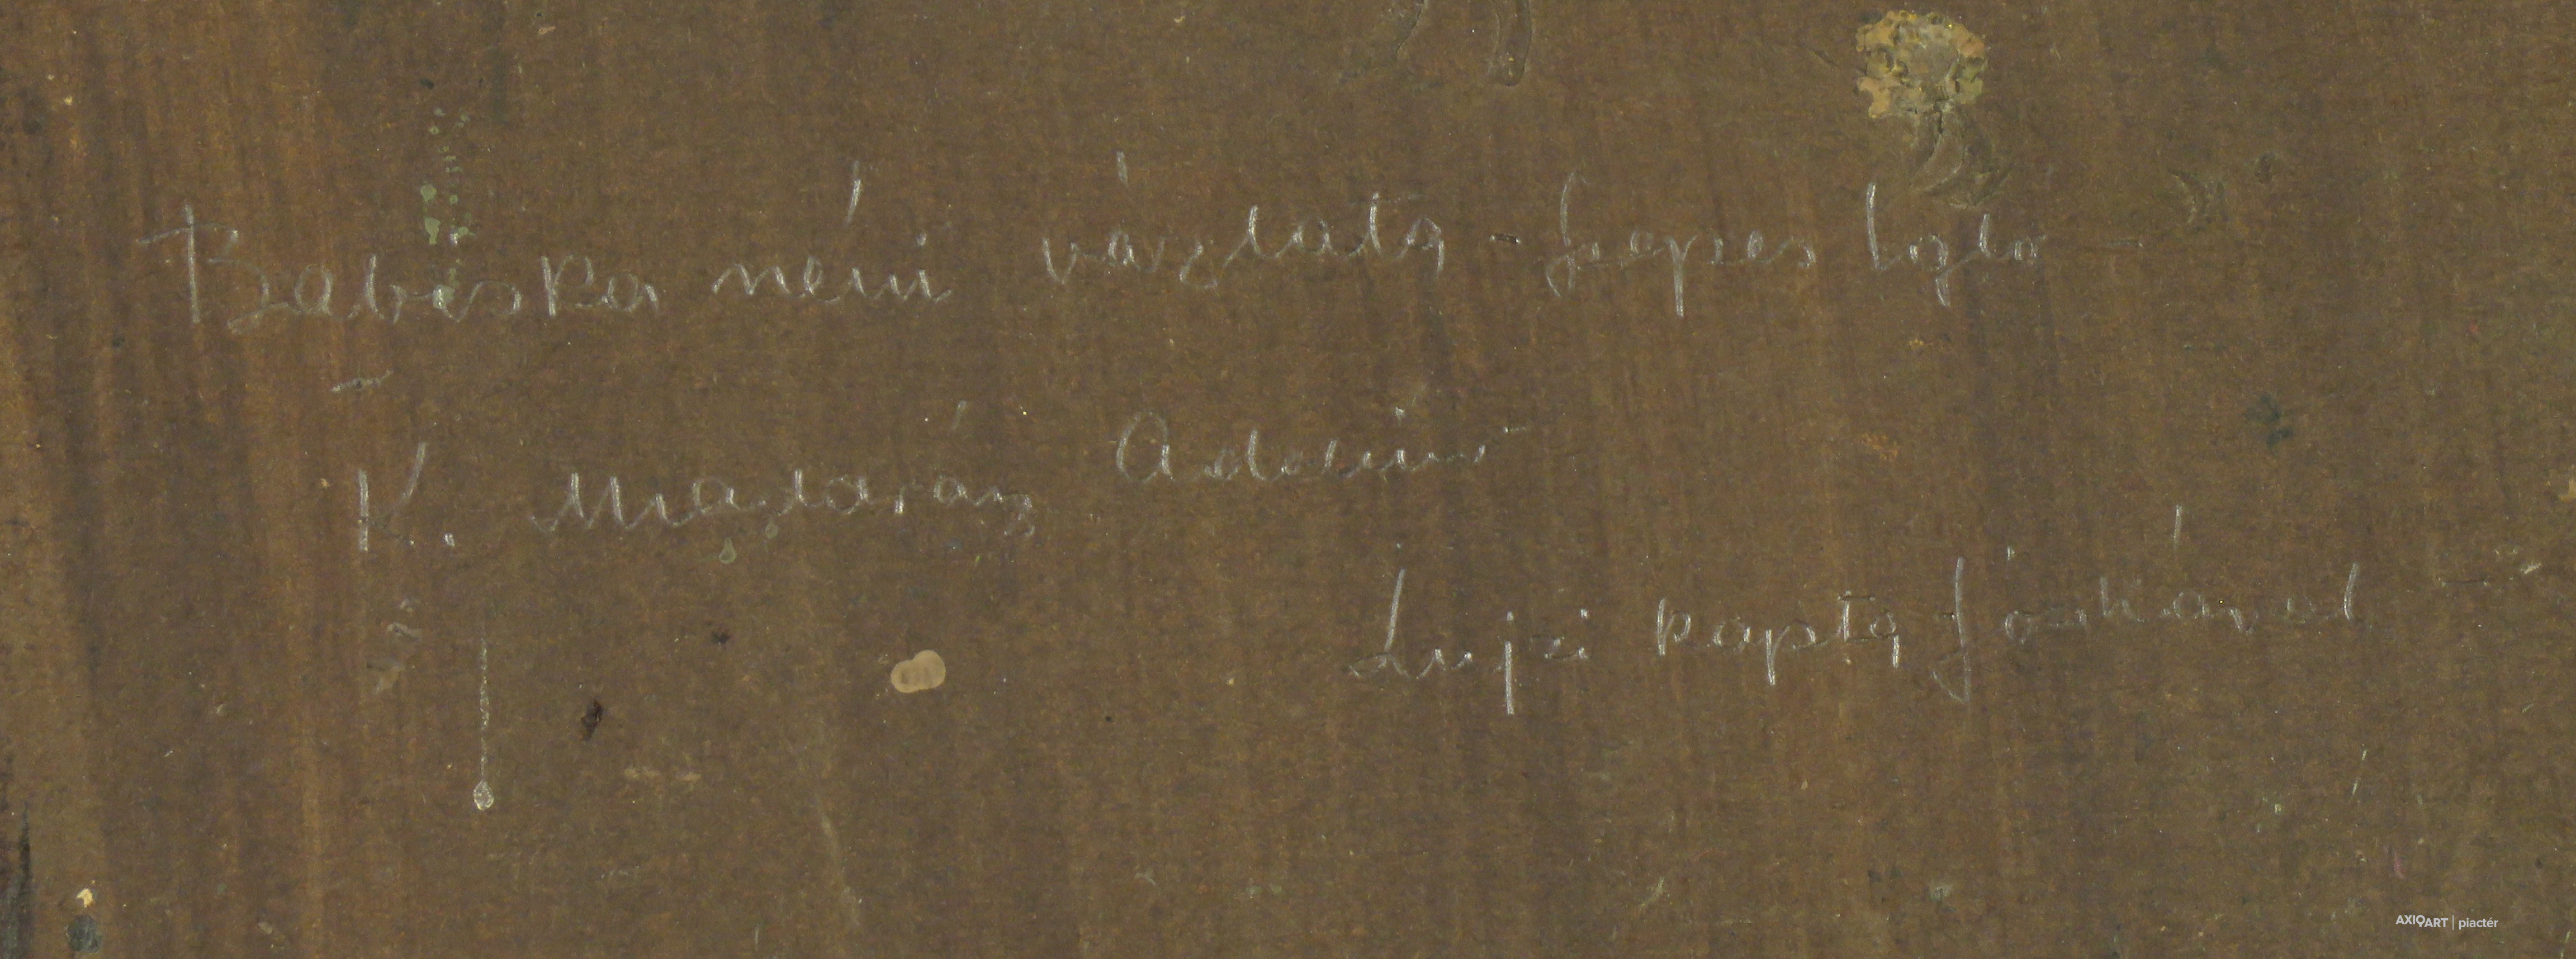 Babuska néni vázlata - Szepes Igló -
K. Madarász Adelin
Lujzi kapta Jóskával
AXIOART | piactér